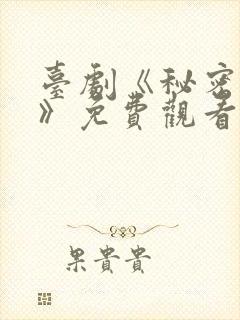 臺劇《秘密
》免費觀看
果貴貴